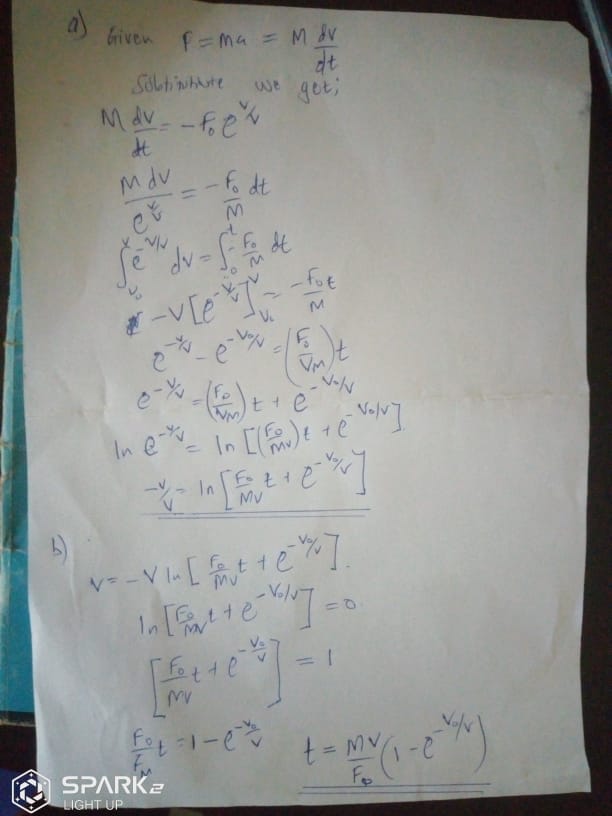 a) Given F = ma = M dv/dt
Substitute we get;
M dv/dt = -F₀ e^(v/V)
M dv / e^(v/V) = -F₀/M dt
∫_(v₀)^v e^(-v/V) dv = ∫_0^t -F₀/M dt
-V [e^(-v/V)]_(v₀)^v = -F₀t/M
e^(-v/V) - e^(-v₀/V) = (F₀/VM) t
e^(-v/V) = (F₀/VM) t + e^(-v₀/V)
ln e^(-v/V) = ln [(F₀/MV) t + e^(-v₀/V)]
-v/V = ln [F₀/MV t + e^(-v₀/V)]
b)
v = -V ln [F₀/MV t + e^(-v₀/V)].
ln [F₀/MV t + e^(-v₀/V)] = 0.
[F₀/MV t + e^(-v₀/V)] = 1
F₀/F_M t = 1 - e^(-v₀/V) t = MV/F₀ (1 - e^(-v₀/V))
SPARK 2
LIGHT UP